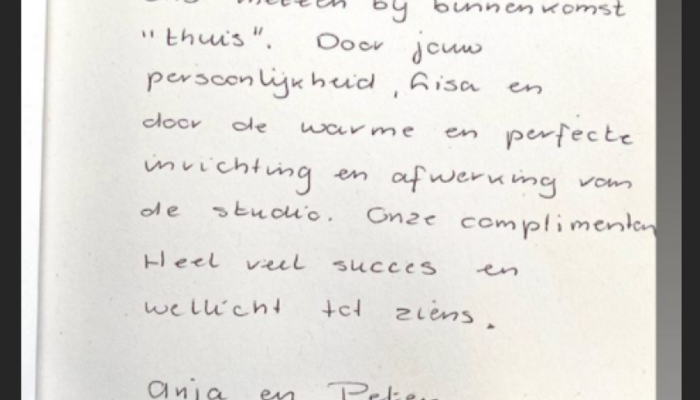 meteen bij binnenkomst
"thuis". Door jouw
persoonlijkheid, Lisa en
door de warme en perfecte
inrichting en afwerking van
de studio. Onze complimenten
Heel veel succes en
wellicht tot ziens.
Anja en Peter